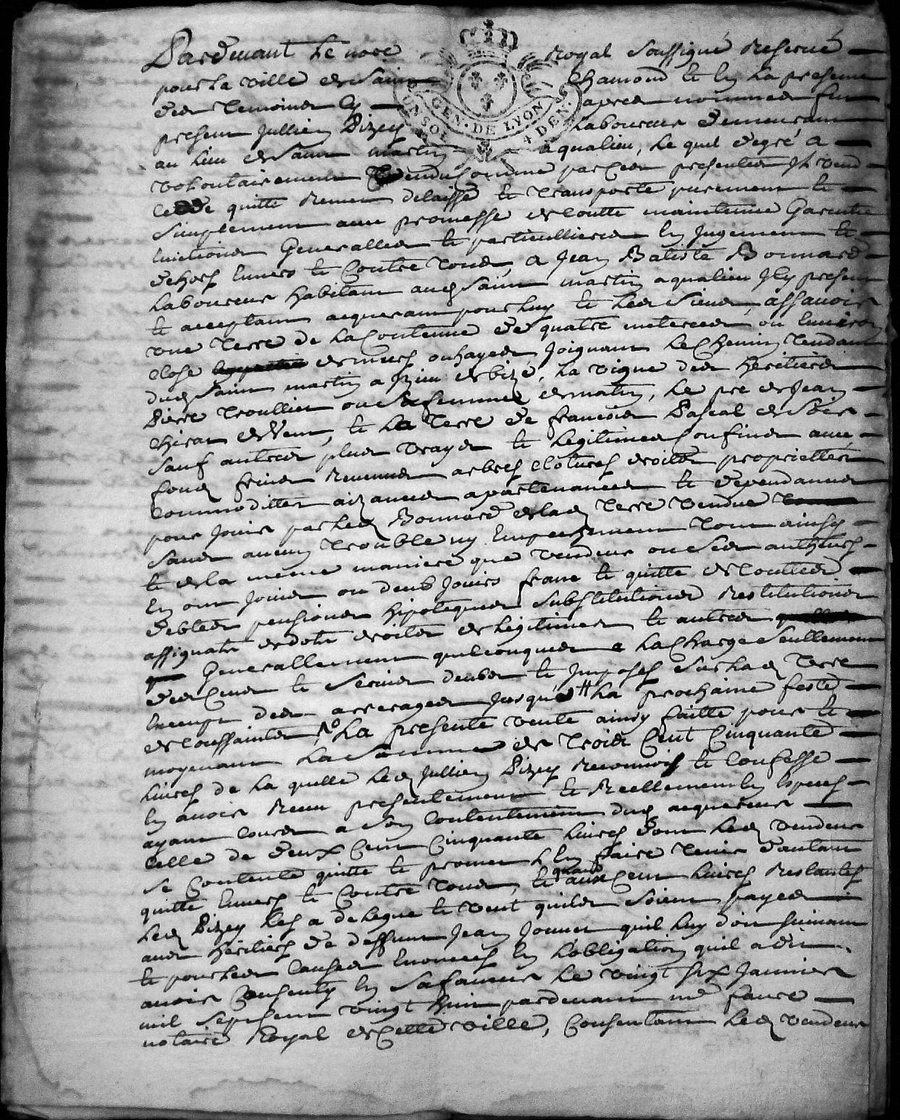 Pardevant le no.re Royal soussigné Reservé
pour la ville de Saint Chamond et en la presence
des Temoins cy apres nommes fut
GEN. DE LYON
4 DEN.
present Jullien Dizey Laboureur demeurant
au lieu de Saint martin a qualieu, Le quel de gré a
volontairement vendu comme par ces presentes Il vend
cedde quitte Remet delaisse et transporte purement et
simplement avec promesse de toutte maintenue Garentie
Generalles et particullieres en Jugement et
dehors Envers et Contre tous, a Jean Batiste Bonnard
Laboureur habitant aud Saint martin a qualieu Icy present
et acceptant acquerant pour luy et les siens, assavoir
une Terre de la Contenue de quatre meterées ou Environ
close de murs ou hayes Joignant Le Chemin Tendant
dud Saint martin a Izieu de bize, La vigne des heritiers
Pierre Troullier ou sa femme de matin, Le pré de Jean
de vent, et La Terre de francois Pascal de Soir
sauf autres plus vrayes et Legitimes Confines avec
fonds Revenus arbres clotures droits proprietes
commodittes aizances apartenances et dependances
pour Jouir par led Bonnard de lad Terre vendue
sans aucun Trouble ny Empechement Tout ainsy
et de la meme maniere que vendeur ou ses autheurs
En ont Joui ou deub Jouir franc et quitte de touttes
debtes pensions hipoteques Substitutions Restitutions
assignats de dote droits de Legitimes et autres
Generallement quelconques a La Charge Seullement
des Cens et Servis deubs et Imposés Sur lad Terre
Exempt des arrerages Jusqu'a La prochaine feste
de toussaints La presente vente ainsy faitte pour et
moyenant La Somme de Trois Cent Cinquante
Livres de La quelle Led Jullien Dizey Reconnois et Confesse
En avoir Receu presentement et Reellement En Especes
ayant Cours a son Contentement dud acquereur
Celle de deux Cent Cinquante Livres dont Led vendeur
se Contente quitte et promet En faire Tenir d'autant
quitte Envers et Contre tous, et quand aux Cent Livres Restantes
Led Dizey Les a delegue et veut quils Soient payes
aux heritiers de deffunt Jean Jouvet quil luy doit suivant
et pour Les Causes Enoncees En L'obligation quil a dit
avoir Consenty En Sa faveur Le vingt Six Janvier
mil Sept Cent vingt huit pardevant me faure
notaire Royal de Cette ville, Consentant Led vendeur